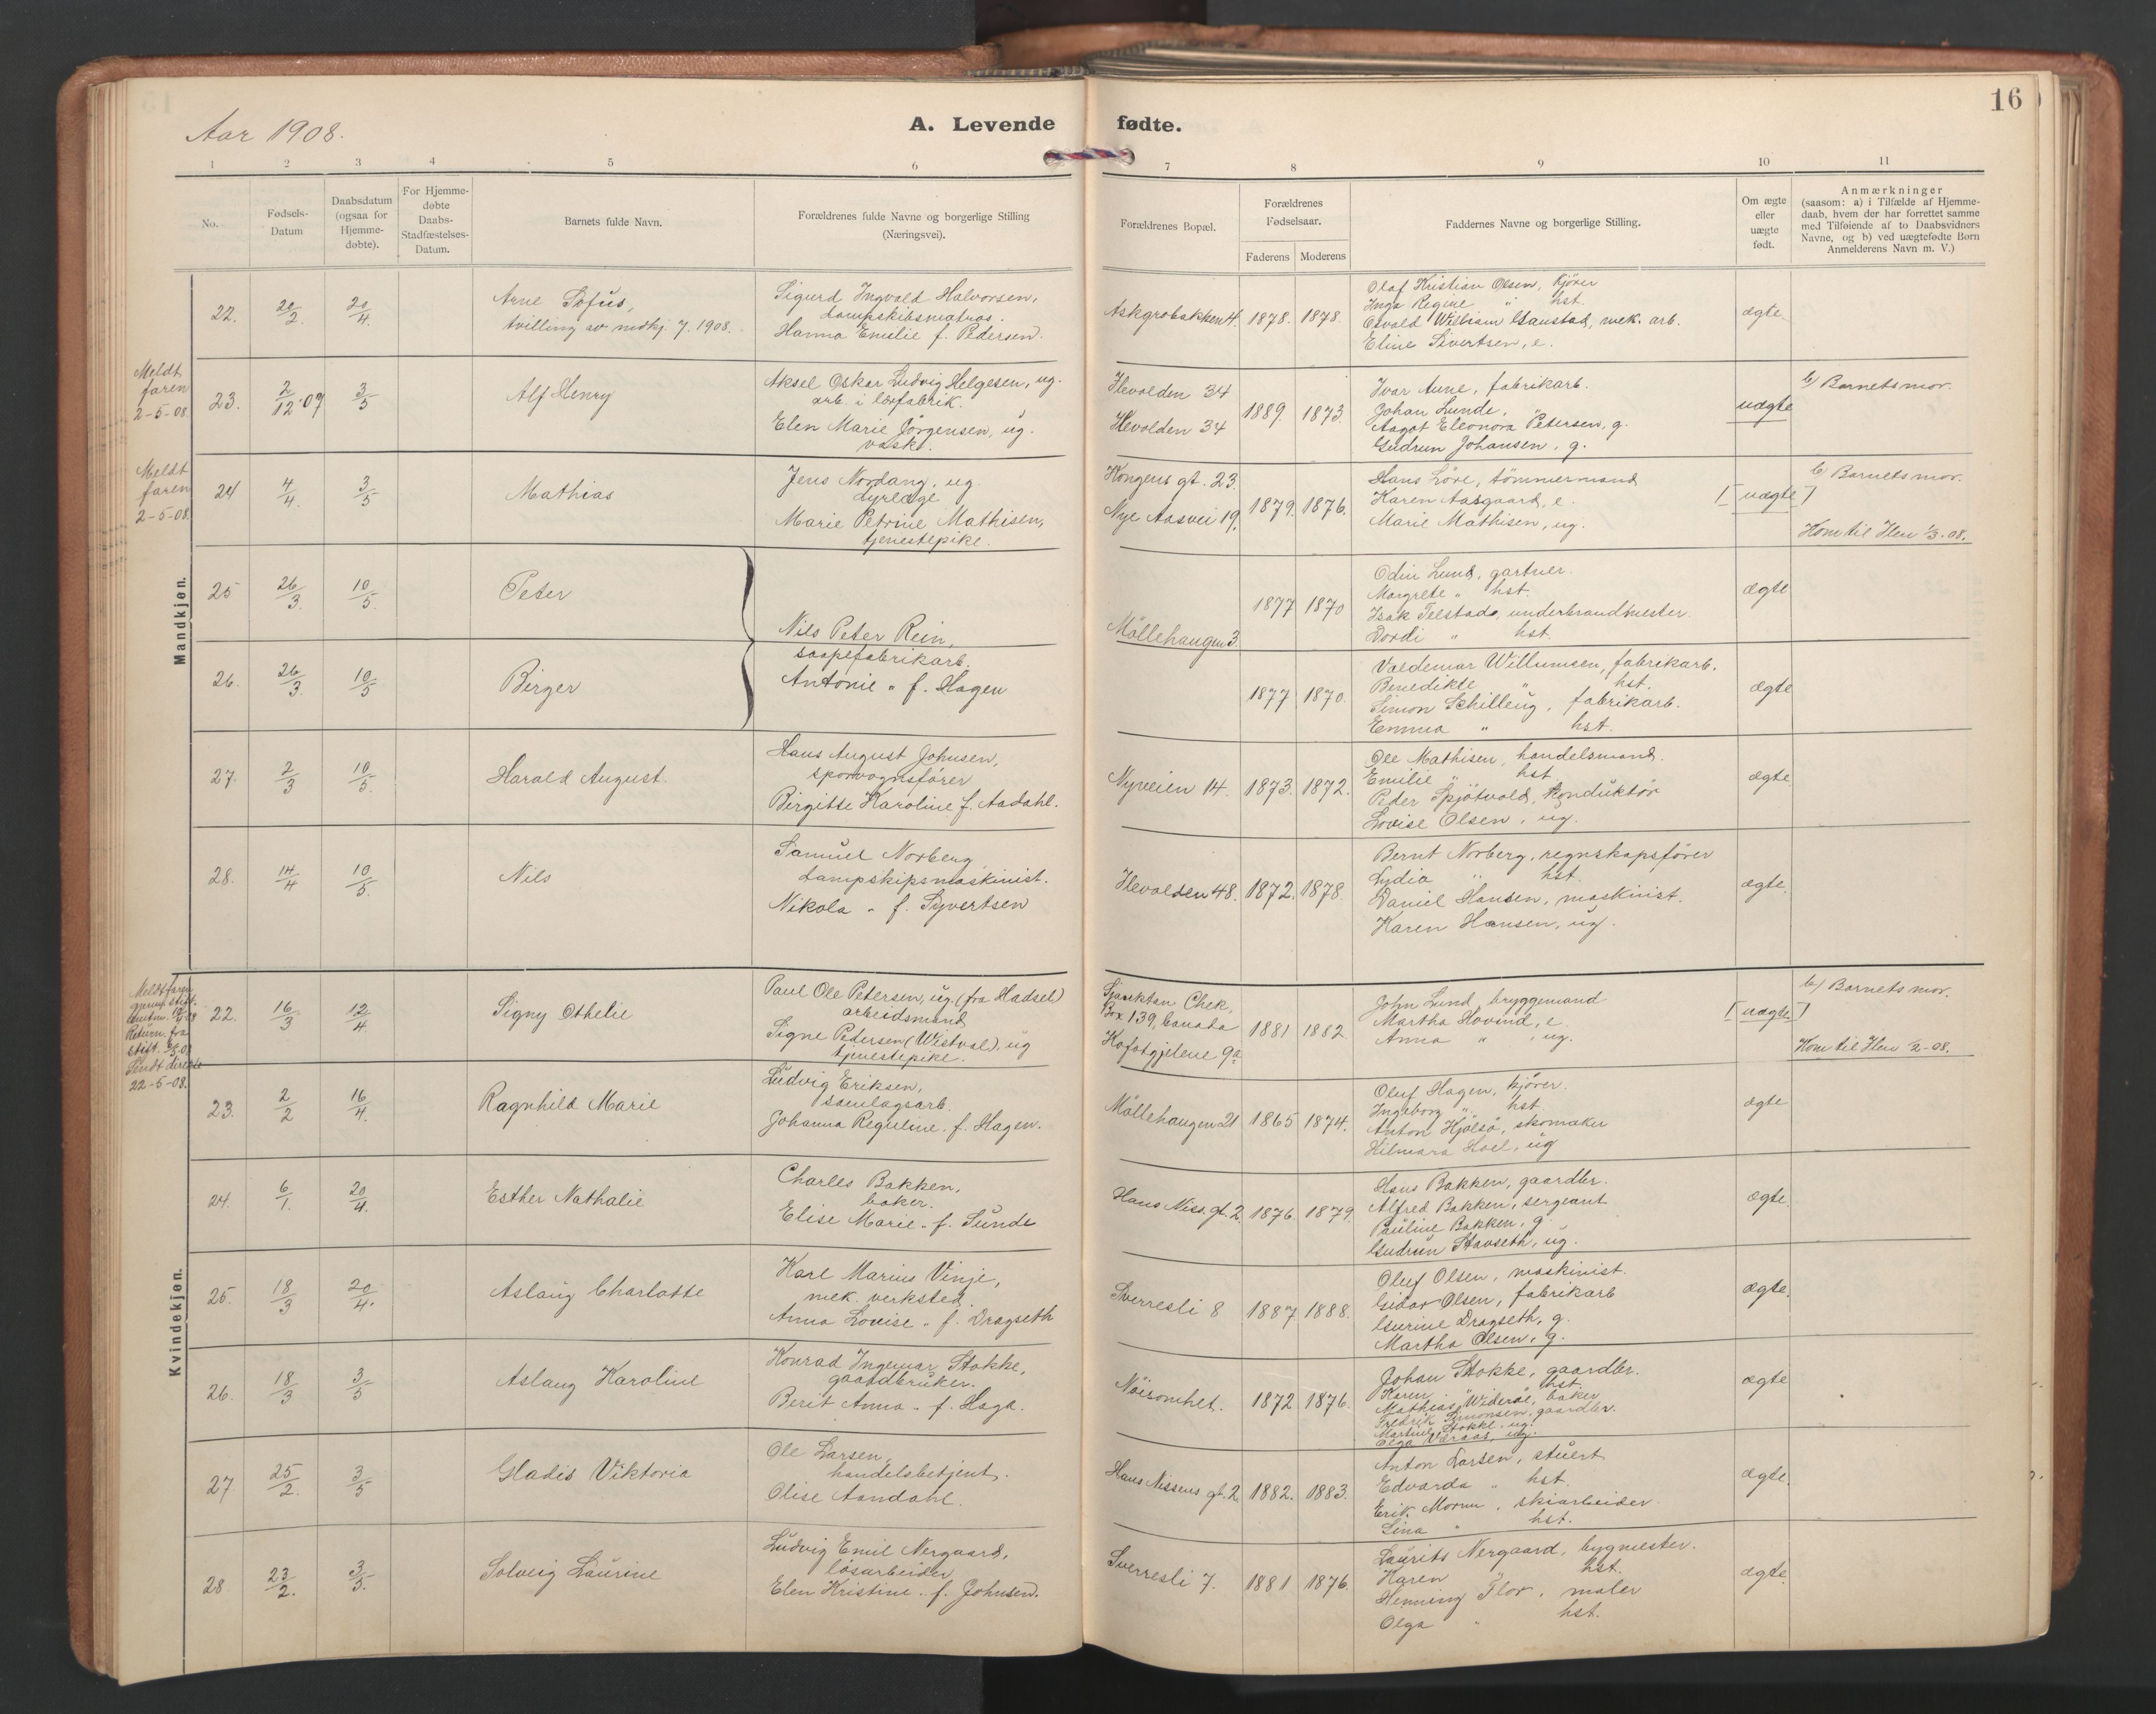 16
Aar 1908.
A. Levende fødte.
1 2 3 4 5 6 7 8 9 10 11
No.
Fødsels-
Datum
Daabsdatum
(ogsaa for
Hjemme-
døbte).
For Hjemme-
døbte
Daabs-
Stadfæstelses-
Datum.
Barnets fulde Navn.
Forældrenes fulde Navne og borgerlige Stilling
(Næringsvei).
Forældrenes Bopæl.
Forældrenes
Fødselsaar.
Faderens Moderens
Faddernes Navne og borgerlige Stilling.
Om ægte
eller
uægte
født.
Anmærkninger
(saasom: a) i Tilfælde af Hjemme-
daab, hvem der har forrettet samme
med Tilføiende af to Daabsvidners
Navne, og b) ved uægtefødte Børn
Anmelderens Navn m. V.)
Mandkjøn.
22. 20/2. 20/4.
Arne Sofus,
tvilling av mdkj. 7. 1908.
Sigurd Ingvald Halvorsen,
dampskibsmatros.
Hanna Emilie f. Pedersen.
Askgrobakken 4. 1878. 1878.
Olaf Kristian Olsen, kjörer
Inga Regine " hst.
Osvald William Gaustad, mek. arb.
Eline Sivertsen, e.
ægte.
Meldt
faren
2-5-08.
23. 2/12 07 3/5
Alf Henry
Aksel Oskar Ludvig Helgesen, ug.
arb. i lærfabrik.
Elen Marie Jörgensen, ug.
vask.
Ilevolden 34
Ilevolden 34
1889. 1873.
Ivar Aune, fabrikarb.
Johan Lunde, "
Aagot Eleonora Petersen, g.
Gudrun Johansen, g.
uægte
b) Barnets mor.
Meldt
faren
2-5-08.
24 4/4. 3/5
Mathias
Jens Nordang, ug.
dyrlæge
Marie Petrine Mathisen,
tjenestepike.
Kongens gt. 23.
Nye Aasvei 19.
1879. 1876.
Hans Löre, tömmermand
Karen Aasgaard, e.
Marie Mathisen, ug.
[uægte]
b) Barnets mor.
Kom til Ilen 1/3-08.
25 26/3. 10/5.
Peter
Nils Peter Rein,
saapefabrikarb.
Antonie " f. Hagen
Möllehaugen 3.
1877 1870
Odin Lund, gartner.
Margrete " hst.
Isak Telstad, underbrandmester.
Dordi " hst.
ægte
26. 26/3. 10/5
Birger
1877 1870.
Valdemar Willumsen, fabrikarb.
Benedikte " hst.
Simon Schilling, fabrikarb.
Emma " hst.
ægte
27. 2/3 10/5.
Harald August.
Hans August Johnsen,
sporvognsfører
Birgitte Karoline f. Aadahl.
Nyveien 14. 1873. 1872.
Ole Mathisen, handelsmand.
Emilie " hst.
Peder Spjötvold, konduktör
Lovise Olsen, ug.
ægte
28. 14/4 10/5.
Nils
Samuel Norberg,
dampskipsmaskinist.
Nikola " f. Syvertsen
Ilevolden 48. 1872. 1878.
Bernt Norberg, regnskapsfører
Lydia " hst.
Daniel Hansen, maskinist.
Karen Hansen, ug.
ægte.
Kvindekjøn.
Meldt faren
Return. fra
Sendt direkte
22-5-08.
22. 16/3 12/4.
Signy Othelie
Paul Ole Petersen, ug. (fra Hadsel)
arbeidsmand
Signe Pedersen (Westvol), ug
tjenestepike.
Box 139, Canada
1881 1882
John Lund, bryggemand
Martha Hovind, e.
Anna " , ug.
[uægte]
b) Barnets mor.
Kom til Ilen 1/2-08.
23. 2/2 16/4.
Ragnhild Marie
Ludvig Eriksen,
samlagsarb.
Johanna Reguline. f. Hagen.
Möllehaugen 21 1865 1874.
Oluf Hagen, kjörer.
Ingeborg " hst.
Anton Hjölsö, skomaker
Hilmara Loel, ug
ægte
24. 6/1. 20/4.
Esther Nathalie
Charles Bakken,
baker.
Elise Marie " f. Sunde
Hans Niss. gt. 2. 1876. 1879.
Hans Bakken, gaardbr.
Alfred Bakken, sergeant
Pauline Bakken, g.
Gudrun Stavseth, ug.
ægte
25. 18/3 20/4.
Aslaug Charlotte
Karl Marius Vinje,
mek. verksted.
Anna Lovise " f. Dragseth
Sverresli 8 1887 1888.
Oluf Olsen, maskinist.
Gidar Olsen, fabrikarb
Gurine Dragseth, g.
Martha Olsen, g.
ægte.
26. 18/3 3/5
Aslaug Karoline
Konrad Ingemar Stokke,
gaardbruker.
Berit Anna " f. Haga.
Nöisomhet. 1872 1876.
Johan Stokke, gaardbr.
Karen " hst.
Mathias Wideröe, baker
Fredrik Simonsen, gaardbr.
Martine Stokke, ug.
Olga Væraas, ug.
ægte
27 25/2. 3/5
Gladis Viktoria
Ole Larsen,
handelsbetjent.
Olise Aandahl.
Hans Nissens gt. 2. 1882. 1883.
Anton Larsen, stuert
Edvarda " hst.
Erik Morum, skiarbeider.
Lina " hst.
ægte.
28 23/2. 3/5.
Solveig Laurine
Ludvig Emil Nergaard,
lösarbeider
Elen Kristine " f. Johnsen.
Sverresli 7. 1881 1876.
Laurits Nergaard, bygmester.
Karen " hst.
Henning Flor, maler
Olga " hst.
ægte.